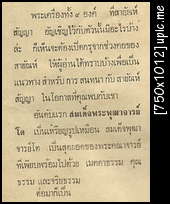 พระเครื่องทั้ง ๙ องค์ ที่สายัณห์
สัญญา อัญเชิญไว้กับตัวนั้นมีอะไรบ้าง
ล่ะ ก็เห็นจะต้องเปิดกรุจากช่วงคอของ
สายัณห์ ให้ผู้อ่านได้ทราบไปพร้อมเพื่อเป็น
แนวทาง สำหรับ การ สนทนา กับ สายัณห์
สัญญา ในโอกาสที่คุณพบกับเขา
อันดับแรก สมเด็จพระพุฒาจารย์
โต เป็นเหรียญรูปเหมือน สมเด็จพุฒา
จารย์โต เป็นสุดยอดของพระคณาจารย์
ที่เพียบพร้อมไปด้วย เมตตาธรรม คุณ
ธรรม และจริยธรรม
ต่อมาก็เป็น
[750x1012] upic.me